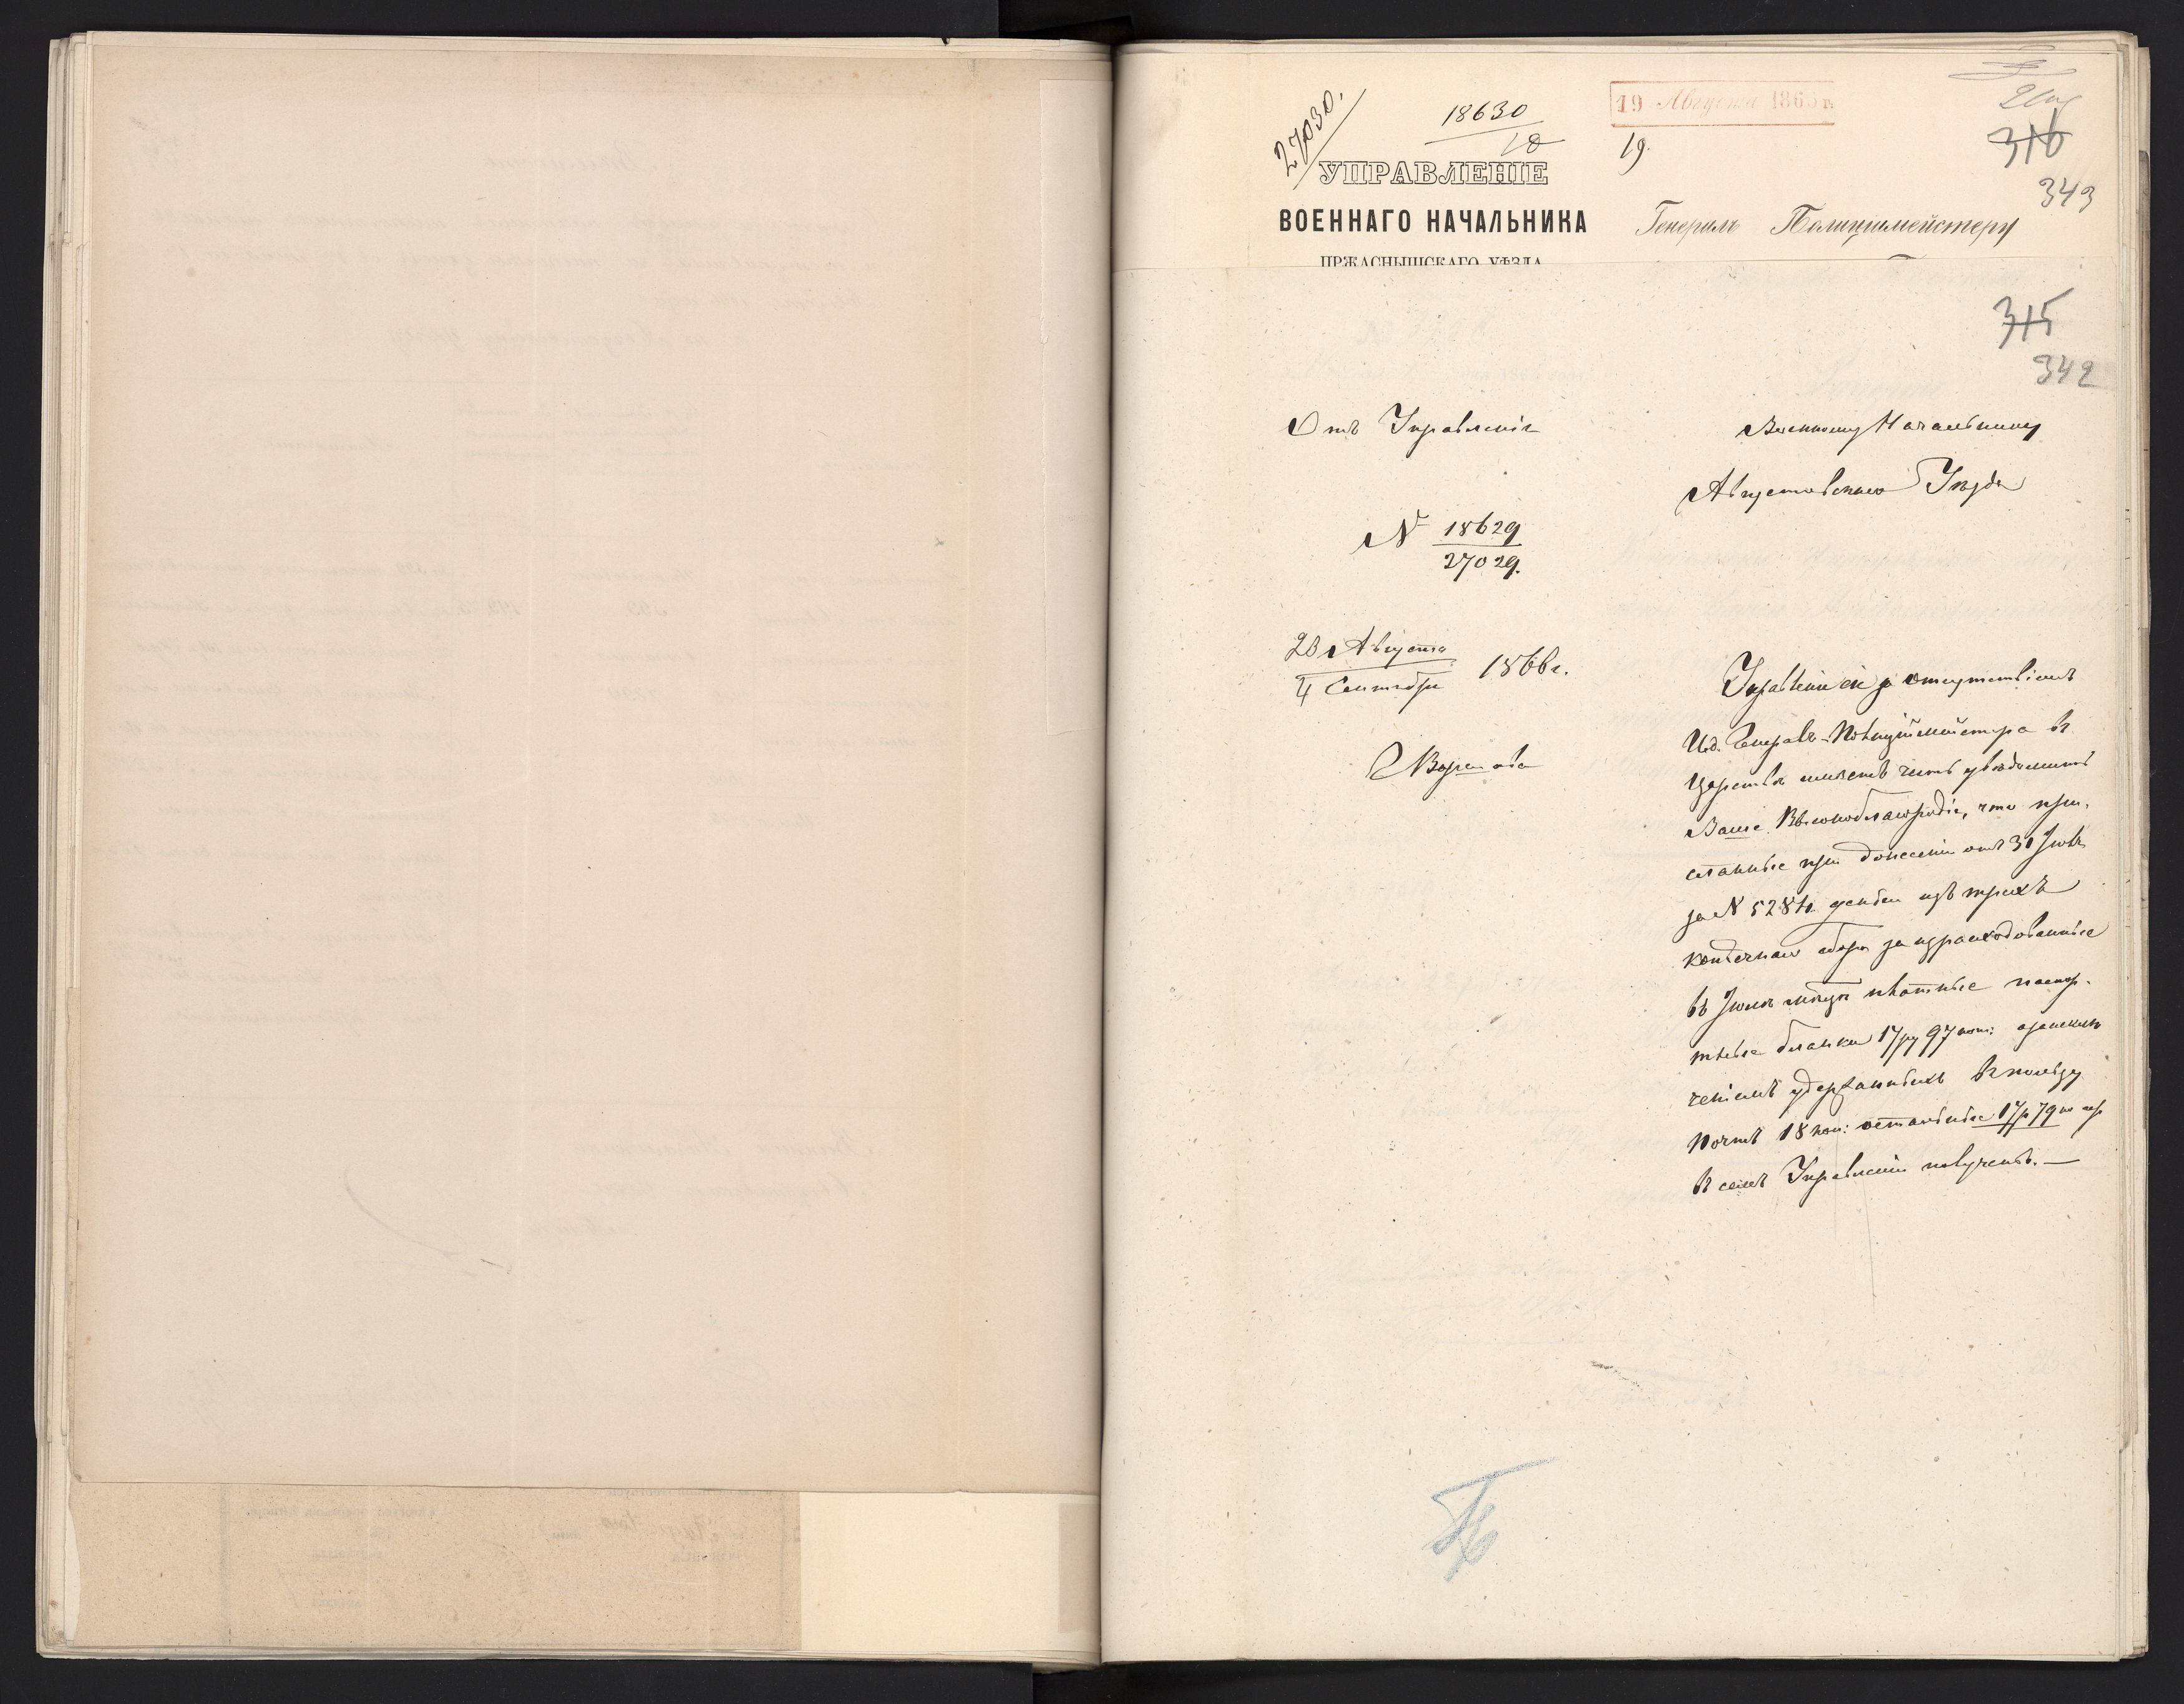 27030.
18630
19 Августа 1866 г.
19.
316
343
УПРАВЛЕНІЕ
ВОЕННАГО НАЧАЛЬНИКА
ПРЖАСНЫШСКАГО УѢЗДА
Генералъ Полиціймейстеру
315
342
Отъ Управленія
Военному Начальнику
Августовскаго Уѣзда
№ 18629
27029.
23 Августа
4 Сентября 1866 г.
Варшава
Управленіе за отсутствіемъ
И.д. Генералъ-Полиціймейстера въ
Царствѣ имѣетъ честь увѣдомить
Ваше Высокоблагородіе, что при-
сланные при донесеніи отъ 31 Іюля
за № 5284 деньги изъ трехъ
копѣечнаго сбора за израсходованные
въ Іюлѣ мѣсяцѣ платные паспор-
тные бланки 17 р. 97 коп:
ченіемъ удержанныхъ въ пользу
Почтъ 18 коп: остальные 17 р 79 к
въ семъ Управленіи получены. —